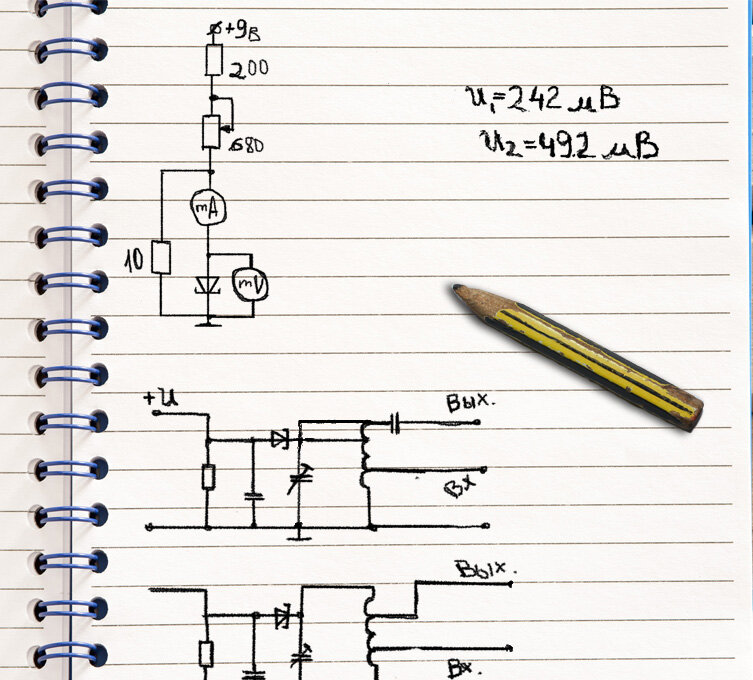 +9В
200
680
U₁=242 мВ
U₂=492 мВ
mA
10
mV
+U
Вых.
Вх
Вых.
Вх.